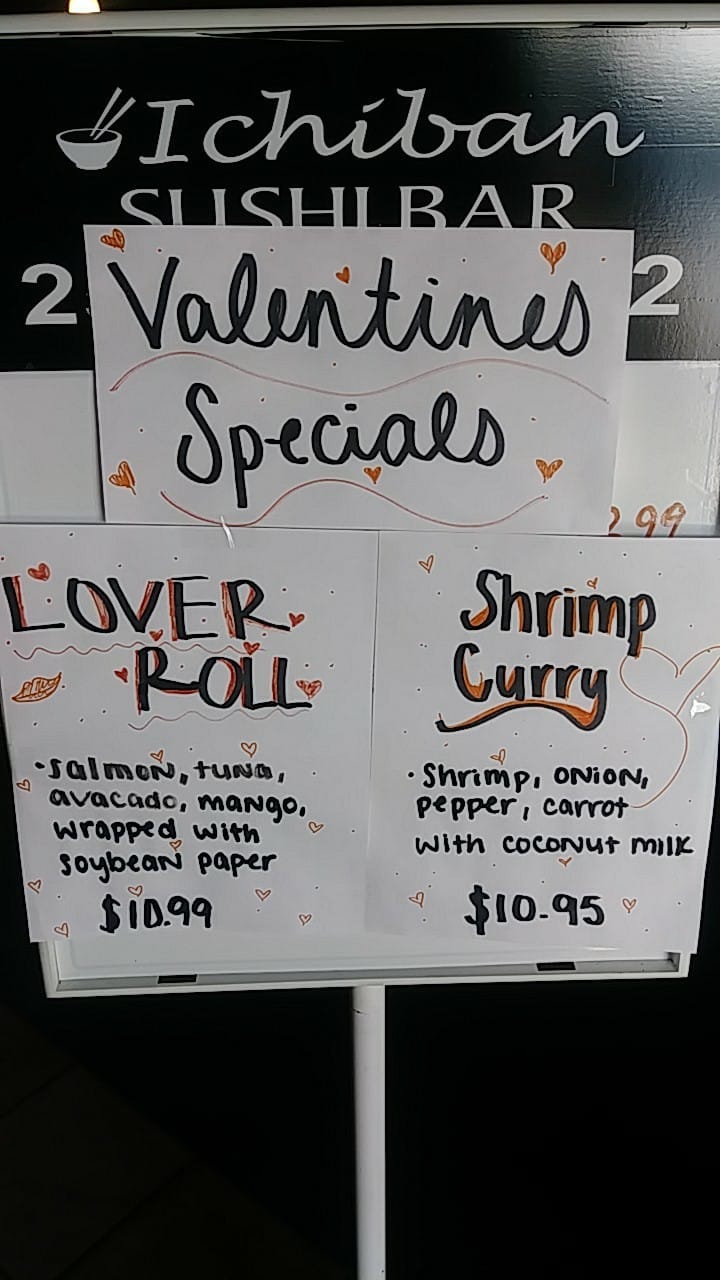 Ichiban
SUSHI BAR
2 2
Valentines
Specials
2.99
LOVER
ROLL
•salmon, tuna,
avacado, mango,
wrapped with
soybean paper
$10.99
Shrimp
Curry
•Shrimp, onion,
pepper, carrot
with coconut milk
$10.95